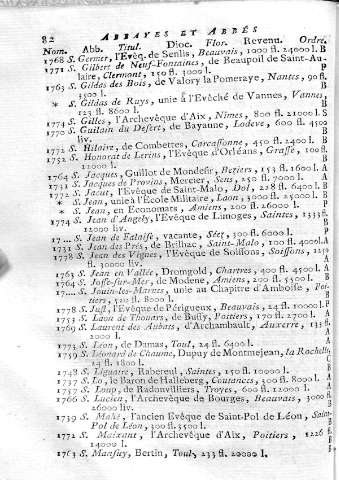 82 ABBAYES ET ABBÉS
Nom. Abb. Titul. Dioc. Flor. Revenu. Ordre.
1768 S. Germer, l'Evêq. de Senlis, Beauvais, 1000 fl. 24000 l. B
1771 S. Gilbert de Neuf-Fontaines, de Beaupoil de Saint-Au- P
laire, Clermont, 150 fl. 3000 l.
1763 S. Gildas des Bois, de Valory la Pomeraye, Nantes, 90 fl.
3500 l. B
* S. Gildas de Ruys, unie à l'Evêché de Vannes, Vannes,
123 fl. 8600 l. B
1774 S. Gilles, l'Archevêque d'Aix, Nîmes, 800 fl. 21000 l. S
1770 S. Guilain du Désert, de Bayanne, Lodeve, 600 fl. 4500
liv. B
1772 S. Hilaire, de Combettes, Carcassonne, 450 fl. 2400 l. B
1752 S. Honorat de Lerins, l'Evêque d'Orléans, Grasse, 100 fl.
12000 l. B
1764 S. Jacques, Guillot de Mondesir, Beziers, 153 fl. 1600 l. A
1731 S. Jacques de Provins, Mercier, Sens, 250 fl. 7000 l. A
1772 S. Jacut, l'Evêque de Saint-Malo, Dol, 228 fl. 6400 l. B
* S. Jean, unie à l'Ecole Militaire, Laon, 3000 fl. 25000 l. B
* S. Jean, en Economats, Amiens, 200 fl. 26000 l. P
1774 S. Jean d'Angely, l'Evêque de Limoges, Saintes, 1333 fl.
12000 liv. B
17... S. Jean de Falaise, vacante, Séez, 300 fl. 6000 l. P
1731 S. Jean des Prés, de Brilhac, Saint-Malo, 100 fl. 4000 l. A
1778 S. Jean des Vignes, l'Evêque de Soissons, Soissons,
fl. 30000 liv. A
1763 S. Jean en Vallée, Dromgold, Chartres, 400 fl. 4500 l. A
1764 S. Josse-sur-Mer, de Modene, Amiens, 200 fl. 5500 l. B
17... S. Jouin-les-Marnes, unie au Chapitre d'Amboise, Poi-
tiers, 520 fl. 8000 l. B
1778 S. Just, l'Evêque de Périgueux, Beauvais, 24 fl. 10000 l. P
1753 S. Laon de Thouars, de Bussy, Poitiers, 170 fl. 2700 l. A
1769 S. Laurent des Aubats, d'Archambault, Auxerre, 133 fl.
2000 l. A
1773 S. Léon, de Damas, Toul, 24 fl. 6400 l. A
1759 S. Léonard de Chaume, Dupuy de Montmejean, la Rochelle,
24 fl. 1800 l.
1748 S. Liguaire, Rabereul, Saintes, 150 fl. 10000 l. B
1737 S. Lo, le Baron de Halleberg, Coutances, 300 fl. 8000 l. A
1757 S. Loup, de Radonvilliers, Troyes, 600 fl. 12000 l. A
1766 S. Lucien, l'Archevêque de Bourges, Beauvais, 3000 fl.
26000 liv. B
1739 S. Mahé, l'ancien Evêque de Saint-Pol de Léon, Saint-
Pol de Léon, 300 fl. 3500 l. B
1771 S. Maixant, l'Archevêque d'Aix, Poitiers, 1226 fl.
14000 l. B
1763 S. Mansuy, Bertin, Toul, 233 fl. 20000 l. B